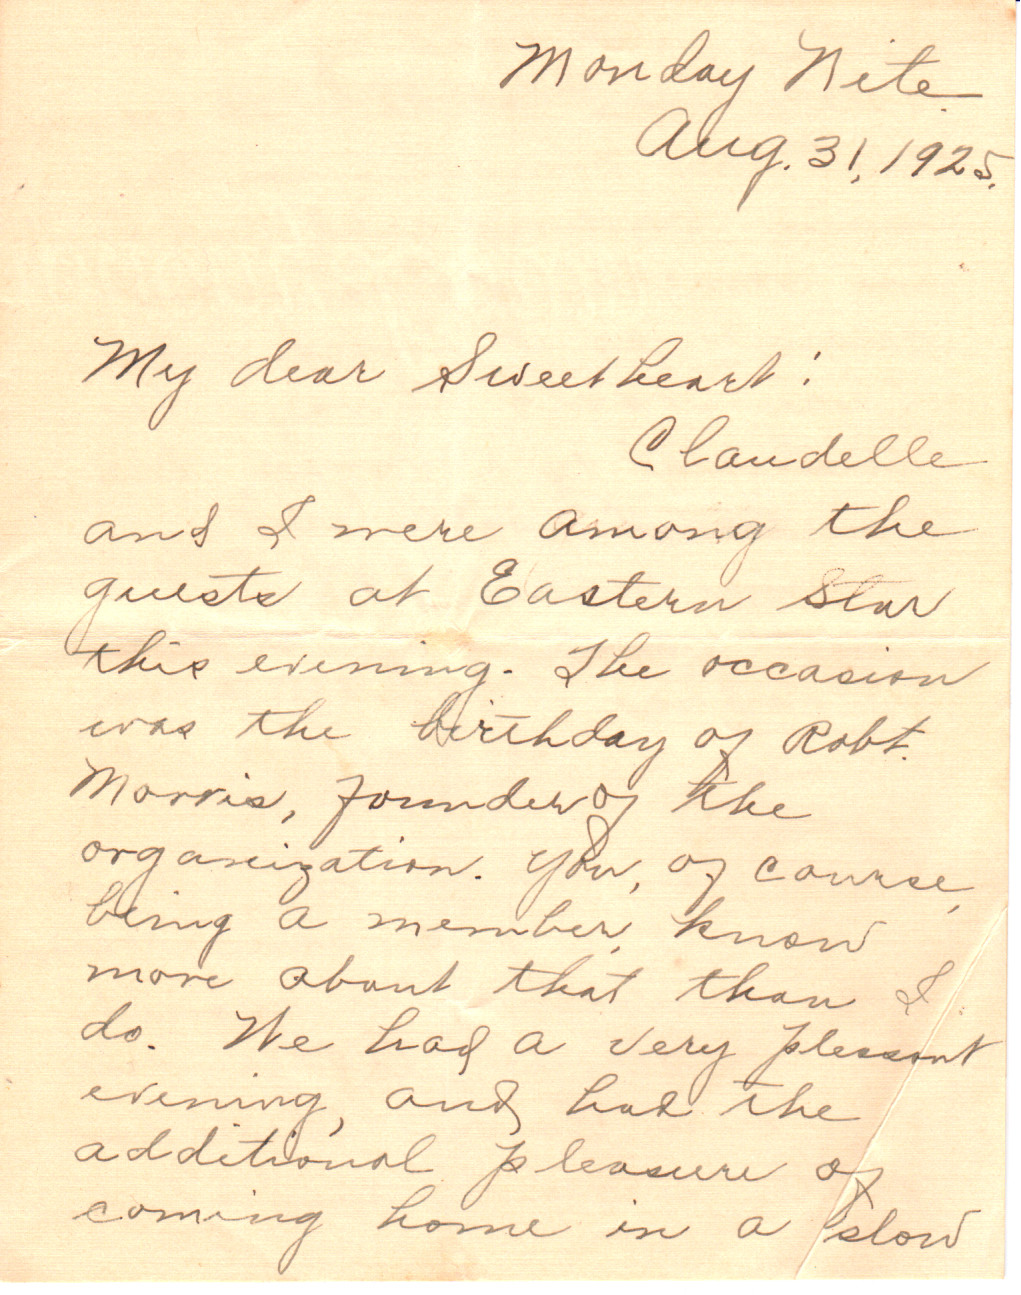 Monday Nite.
Aug. 31, 1925.
My dear Sweetheart:
Claudelle
and I were among the
guests at Eastern Star
this evening. The occasion
was the birthday of Robt.
Morris, founder of the
organization. You, of course,
being a member, know
more about that than I
do. We had a very pleasant
evening, and had the
additional pleasure of
coming home in a slow